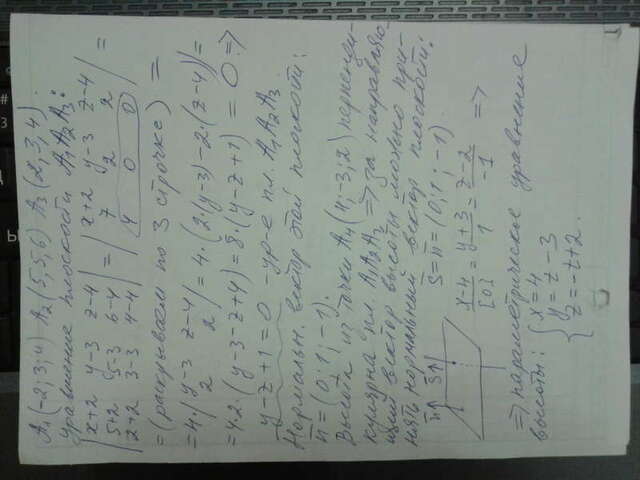 A₁(-2;3;4) A₂(5;5;6) A₃(2;3;4).
уравнение плоскости A₁A₂A₃:
|x+2 y-3 z-4| |x+2 y-3 z-4|
|5+2 5-3 6-4| = |7 2 2| =
|2+2 3-3 4-4| |4 0 0|
=(раскрываем по 3 строчке) =
=4·|y-3 z-4; 2 2| = 4·(2·(y-3)-2·(z-4))=
=4·2·(y-3-z+4)=8·(y-z+1)=0 ⇒
y-z+1=0 -ур-е пл. A₁A₂A₃
Нормальн. вектор этой плоскости:
n=(0;1;-1).
Высота из точки A₄(4;-3;2) перпенди-
кулярна пл. A₁A₂A₃ ⇒ за направляю-
щий вектор высоты можно при-
нять нормальный вектор плоскости:
n↑ S↑ S=n=(0;1;-1)
x-4/[0] = y+3/1 = z-2/-1 ⇒
⇒ параметрическое уравнение
высоты: { x=4
y=t-3
z=-t+2.